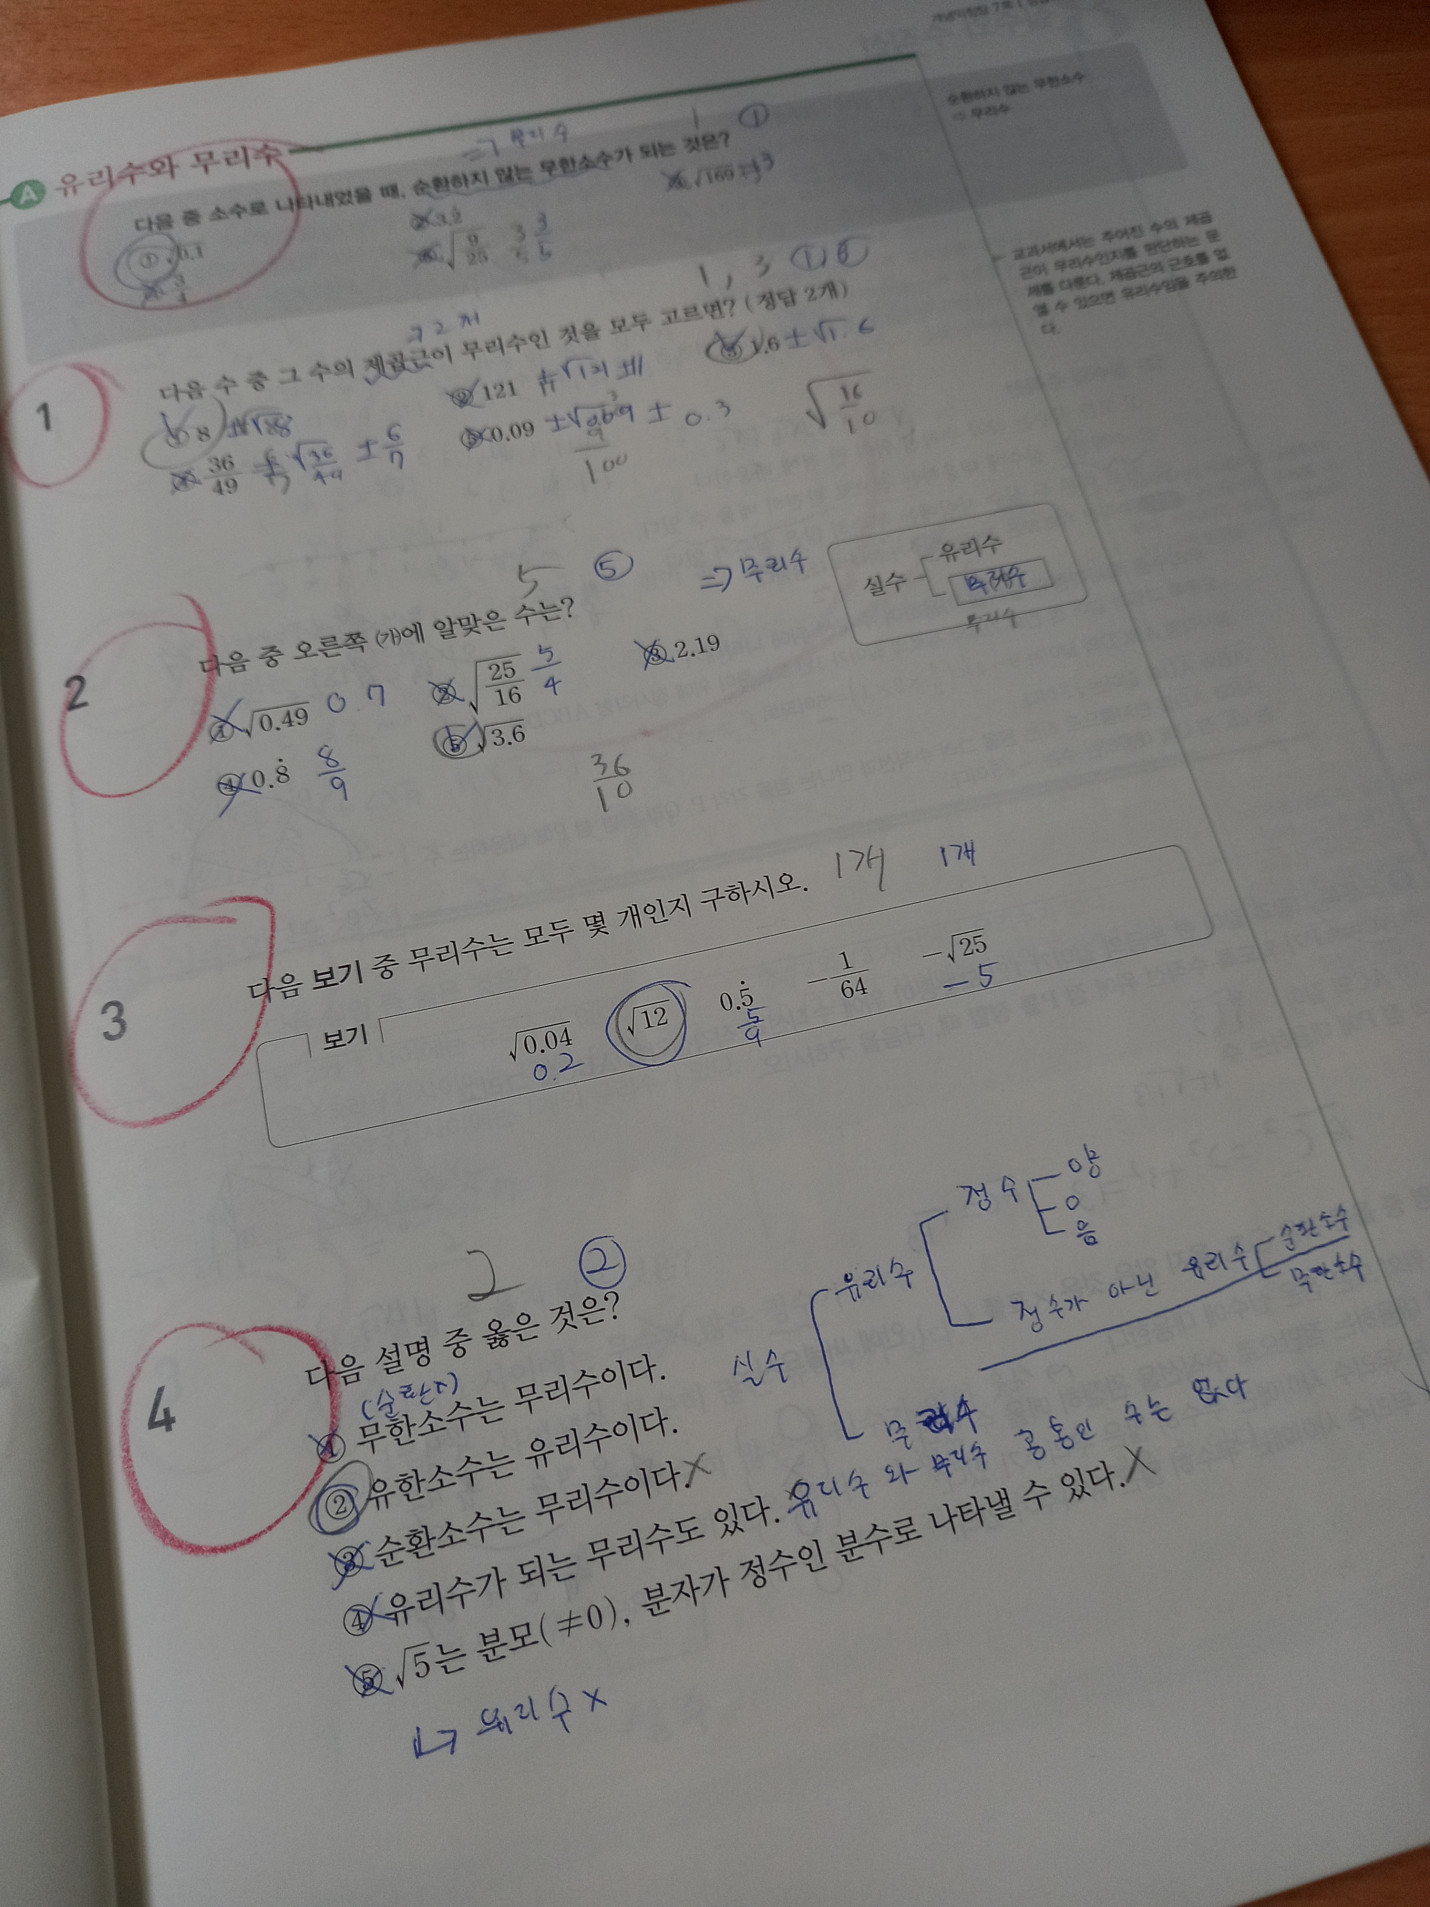 순환하지 않는 무한소수
⇨ 무리수
A 유리수와 무리수
⇒ 무리수
1 ①
다음 중 소수로 나타내었을 때, 순환하지 않는 무한소수가 되는 것은?
① √0.1
√169 = 13
√9/25 3/5 3/5
교과서에서는 주어진 수의 제곱
근이 무리수인지를 판단하는 문
제를 다룬다. 제곱근의 근호를 없
앨 수 있으면 유리수임을 주의한
다.
1, 3
1 다음 수 중 그 수의 제곱근이 무리수인 것을 모두 고르면? (정답 2개)
① 8 ② 121 ±√121 ±11 ③ 1.6 ±√1.6
④ 36/49 √36/49 ±6/7 ⑤ 0.09 ± 0.3 √16/10
9/100
5 ⑤ ⇒ 무리수
2 다음 중 오른쪽 ㈎에 알맞은 수는?
실수 유리수
무리수
① √0.49 0.7 ② √25/16 5/4 ③ 2.19
④ 0.8̇ 8/9 ⑤ √3.6
36/10
3 다음 보기 중 무리수는 모두 몇 개인지 구하시오. 1개 1개
보기
√0.04 √12 0.5̇ −1/64 −√25
0.2 5/9 −5
2 ②
4 다음 설명 중 옳은 것은?
① 무한소수는 무리수이다.
② 유한소수는 유리수이다.
③ 순환소수는 무리수이다. ×
④ 유리수가 되는 무리수도 있다. 유리수와 무리수 공통인 수는 없다
⑤ √5는 분모(≠0), 분자가 정수인 분수로 나타낼 수 있다. ×
↳ 유리수 ×
실수
유리수
정수
양
0
음
정수가 아닌 유리수
순환소수
무한소수